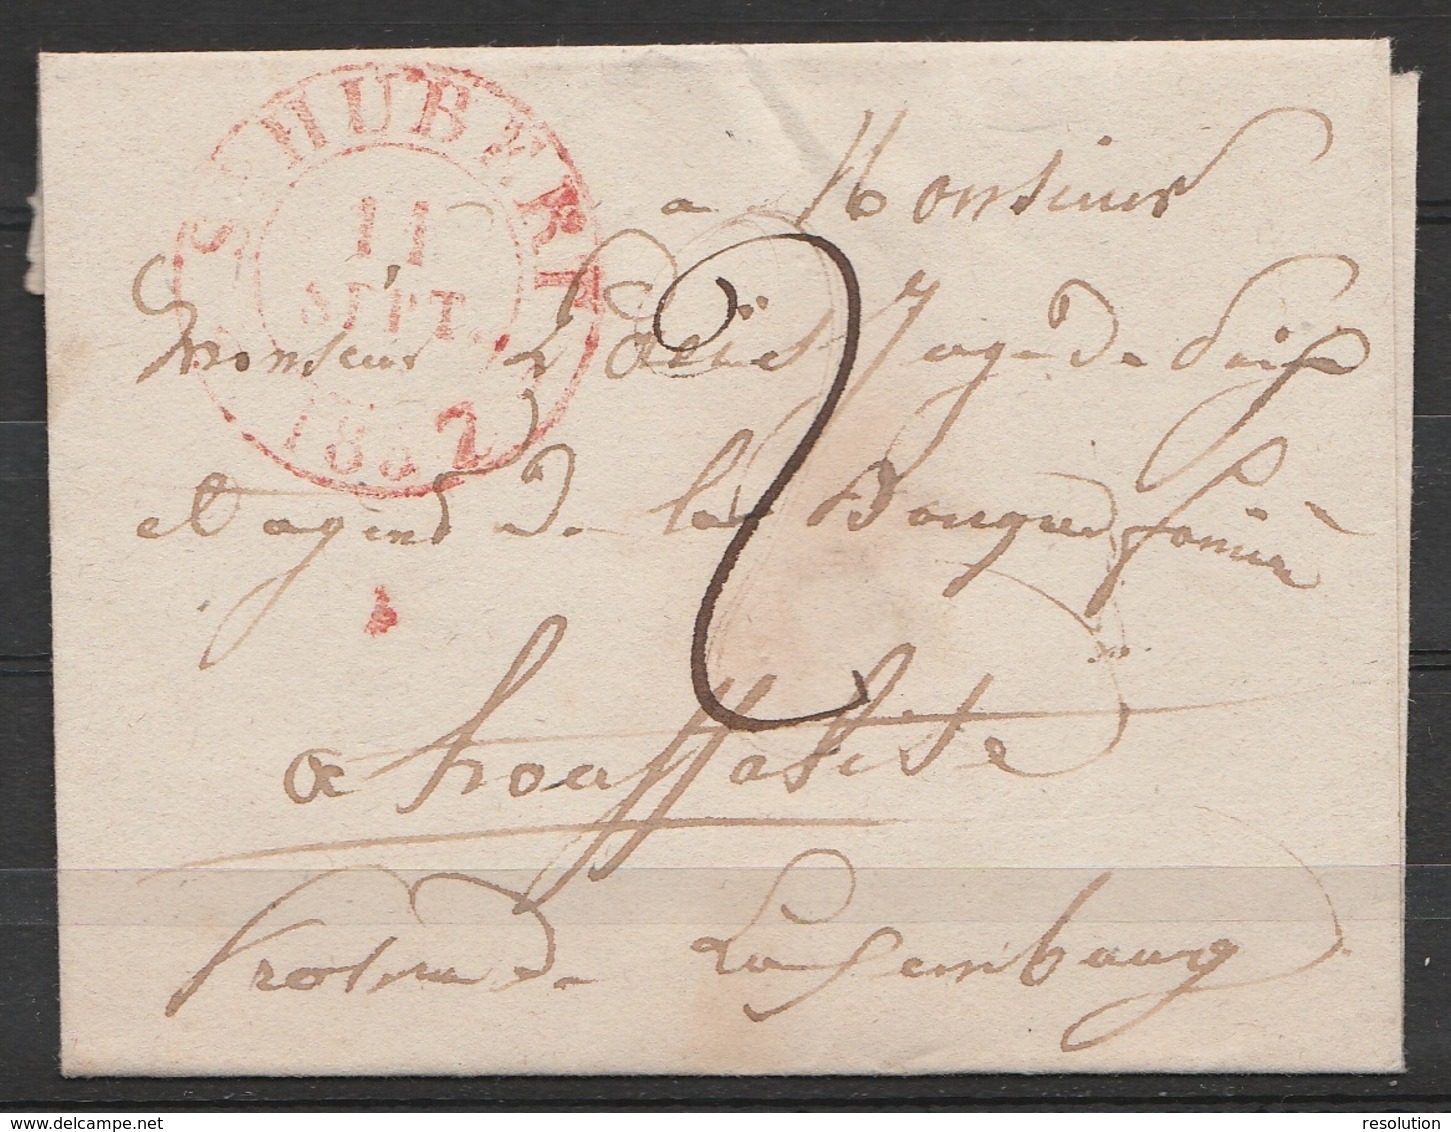 ST HUBERT
11
SEPT.
1832
a Monsieur
Monsieur Juge de Paix
et agend de la Banque fonsier
2
a houffalise
frosvince de Luxembourg
delcampe.net
resolution